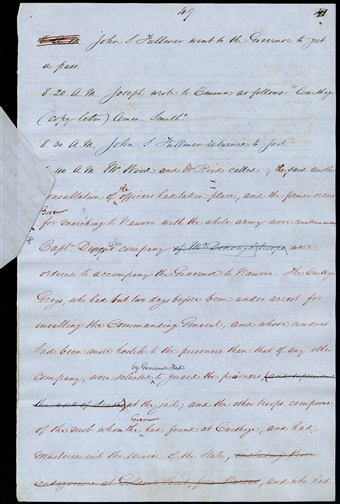 49
John S. Fullmer went to the Governor to get
a pass.
8. 20 A.M. Joseph wrote to Emma as follows: "Carthage
(copy letter) Amen. Smith.
8. 30 A.M. John S. Fullmer returned to jail.
40 A.M. Mr Wood and Mr Reid called, they said another
consultation of the officers had taken place, and the former orders
Governor
for marching to Nauvoo with the whole army were countermanded
Capt. Dunn's company of were
ordered to accompany the Governor to Nauvoo. The Carthage
Greys, who had but two days before been under arrest for
insulting the Commanding General, and whose conduct
had been more hostile to the prisoners than that of any other
by Governor Ford
company, were selected to guard the prisoners
at the jail; and the other troops composed
Governor
of the mob whom the had found at Carthage, and had
mustered into the service of the State,
and who had